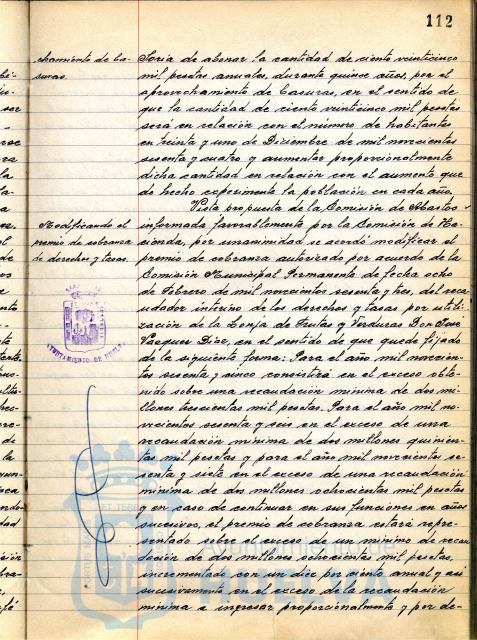 112
chamiento de ba-
suras.
Soria de abonar la cantidad de ciento veinticinco
mil pesetas anuales, durante quince años, por el
aprovechamiento de basuras, en el sentido de
que la cantidad de ciento veinticinco mil pesetas
será en relación con el número de habitantes
en treinta y uno de Diciembre de mil novecientos
sesenta y cuatro y aumentar proporcionalmente
dicha cantidad en relación con el aumento que
de hecho experimente la población en cada año.
Vista propuesta de la Comisión de Abastos
Modificando el
premio de cobranza
de derechos y tasas.
informada favorablemente por la Comisión de Ha-
cienda, por unanimidad se acordó modificar el
premio de cobranza autorizado por acuerdo de la
Comisión Municipal Permanente de fecha ocho
de Febrero de mil novecientos sesenta y tres, del recau
udador interino de los derechos y tasas por utili-
zación de la Lonja de Frutas y Verduras Don José
Vazquez Diaz, en el sentido de que quede fijado
de la siguiente forma: Para el año mil novecien-
tos sesenta y cinco consistirá en el exceso obte-
nido sobre una recaudación mínima de dos mi-
llones trescientas mil pesetas. Para el año mil no-
vecientos sesenta y seis en el exceso de una
recaudación mínima de dos millones quinien-
tas mil pesetas y para el año mil novecientos se-
senta y siete en el exceso de una recaudación
mínima de dos millones ochocientas mil pesetas
y en caso de continuar en sus funciones en años
sucesivos, el premio de cobranza estará repre-
sentado sobre el exceso de un mínimo de recau
dación de dos millones ochocientas mil pesetas,
incrementado con un diez por ciento anual y así
sucesivamente en el exceso de la recaudación
mínima a ingresar proporcionalmente y por de-
AYUNTAMIENTO DE HUELVA